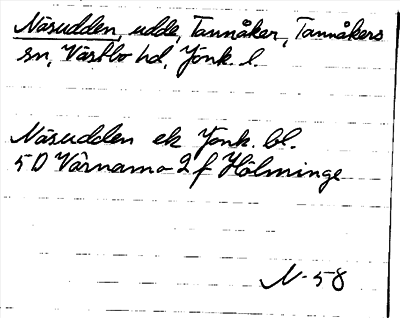 Näsudden, udde, Tannåker, Tannåkers
sn, Västbo hd, Jönk. l.
Näsudden ek Jönk. bl.
5D Värnamo 2 f Hölminge
N-58